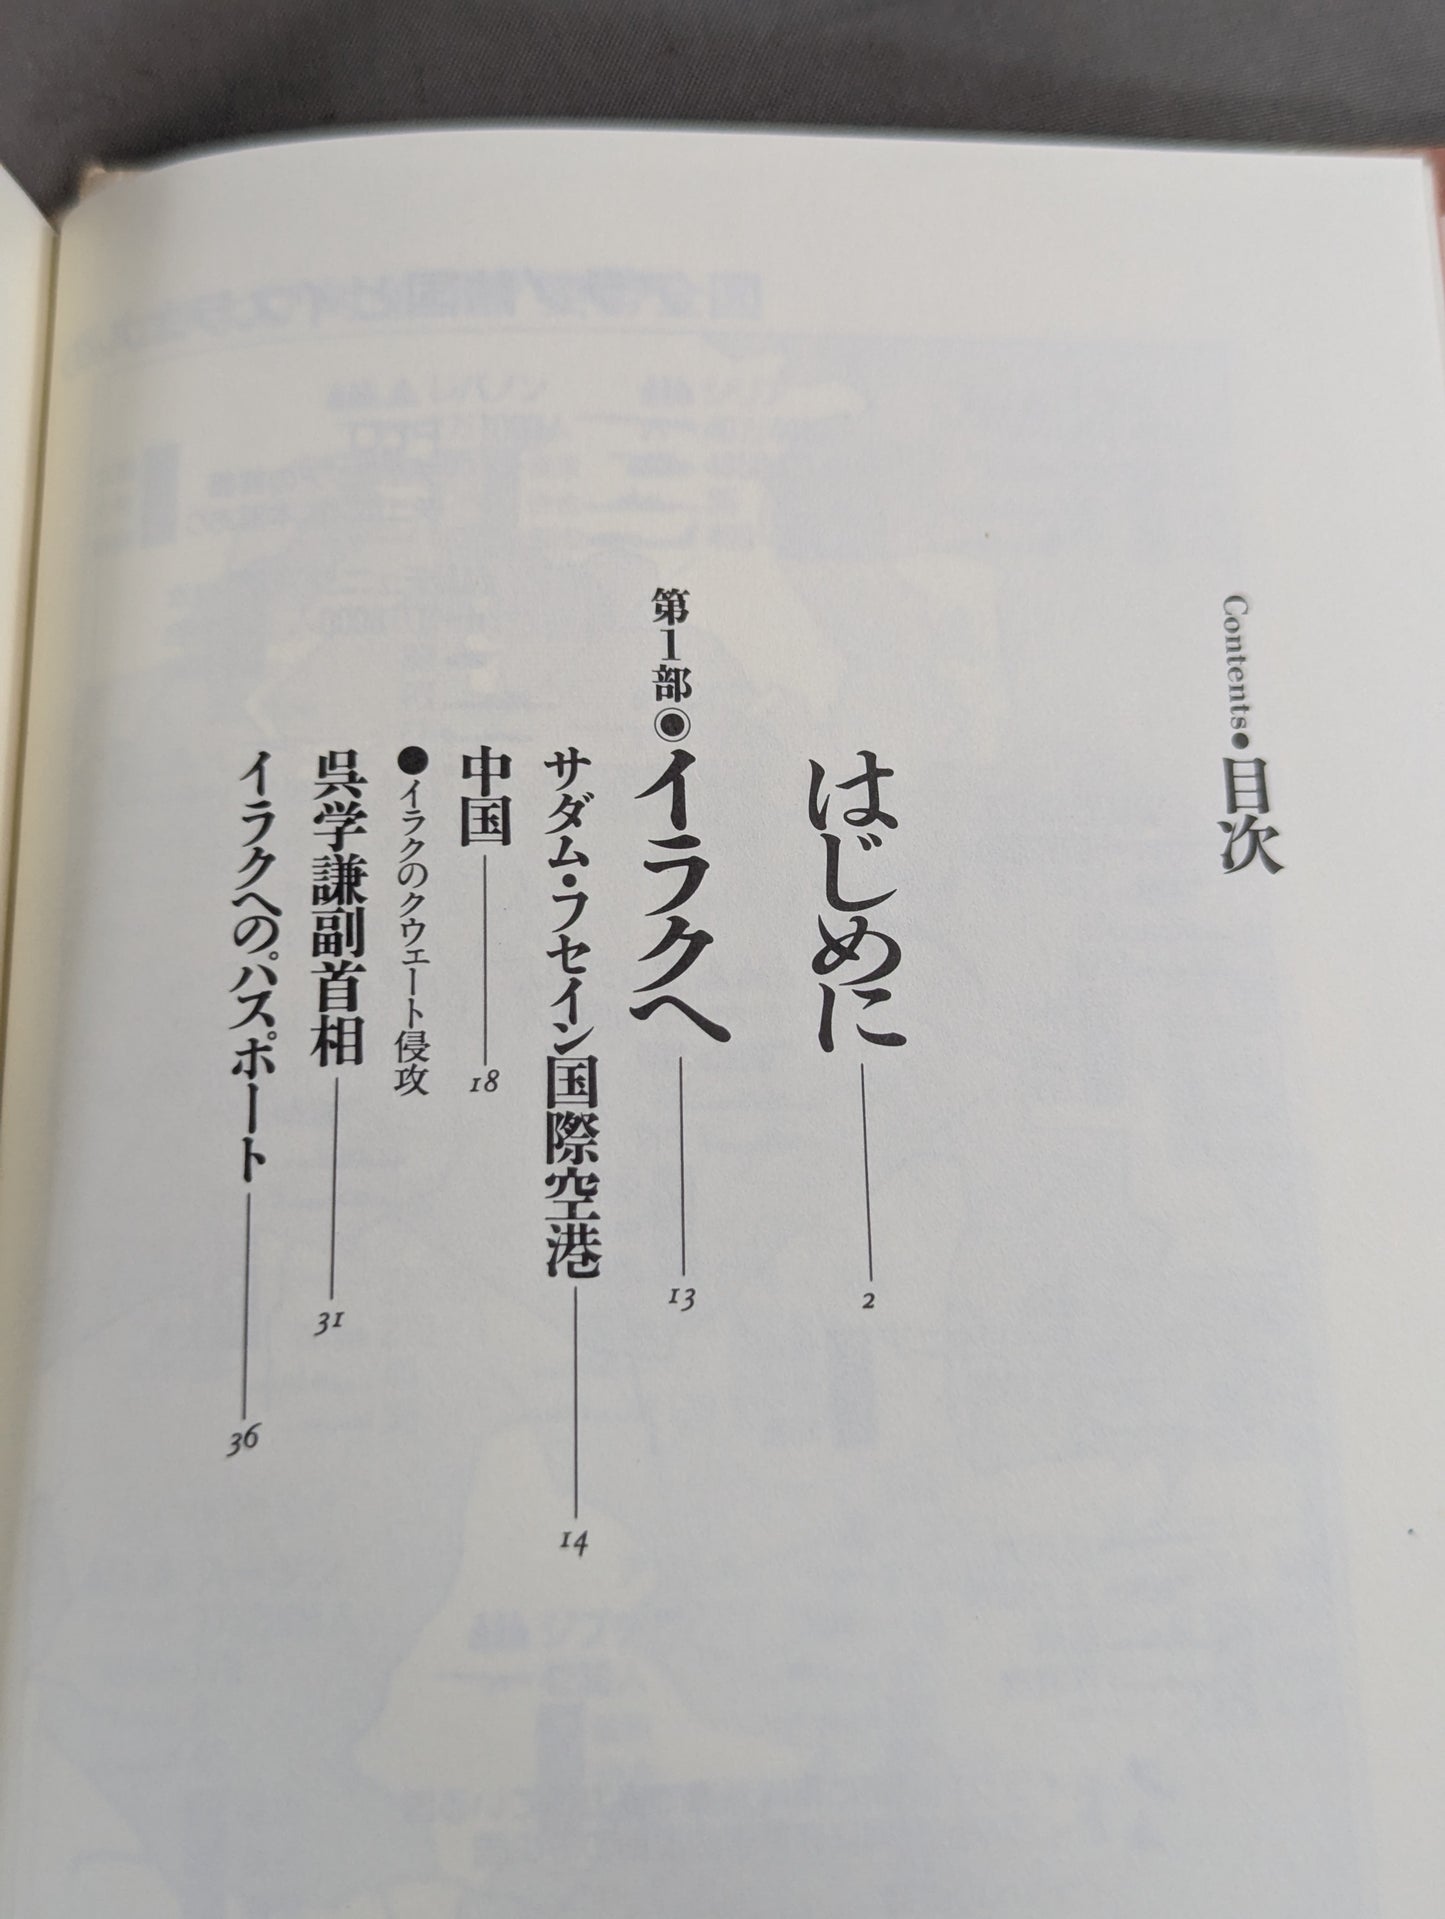 Contents●目次
はじめに 2
第1部◉イラクへ 13
サダム・フセイン国際空港 14
中国 18
●イラクのクウェート侵攻
呉学謙副首相 31
イラクへのパスポート 36
レバノン